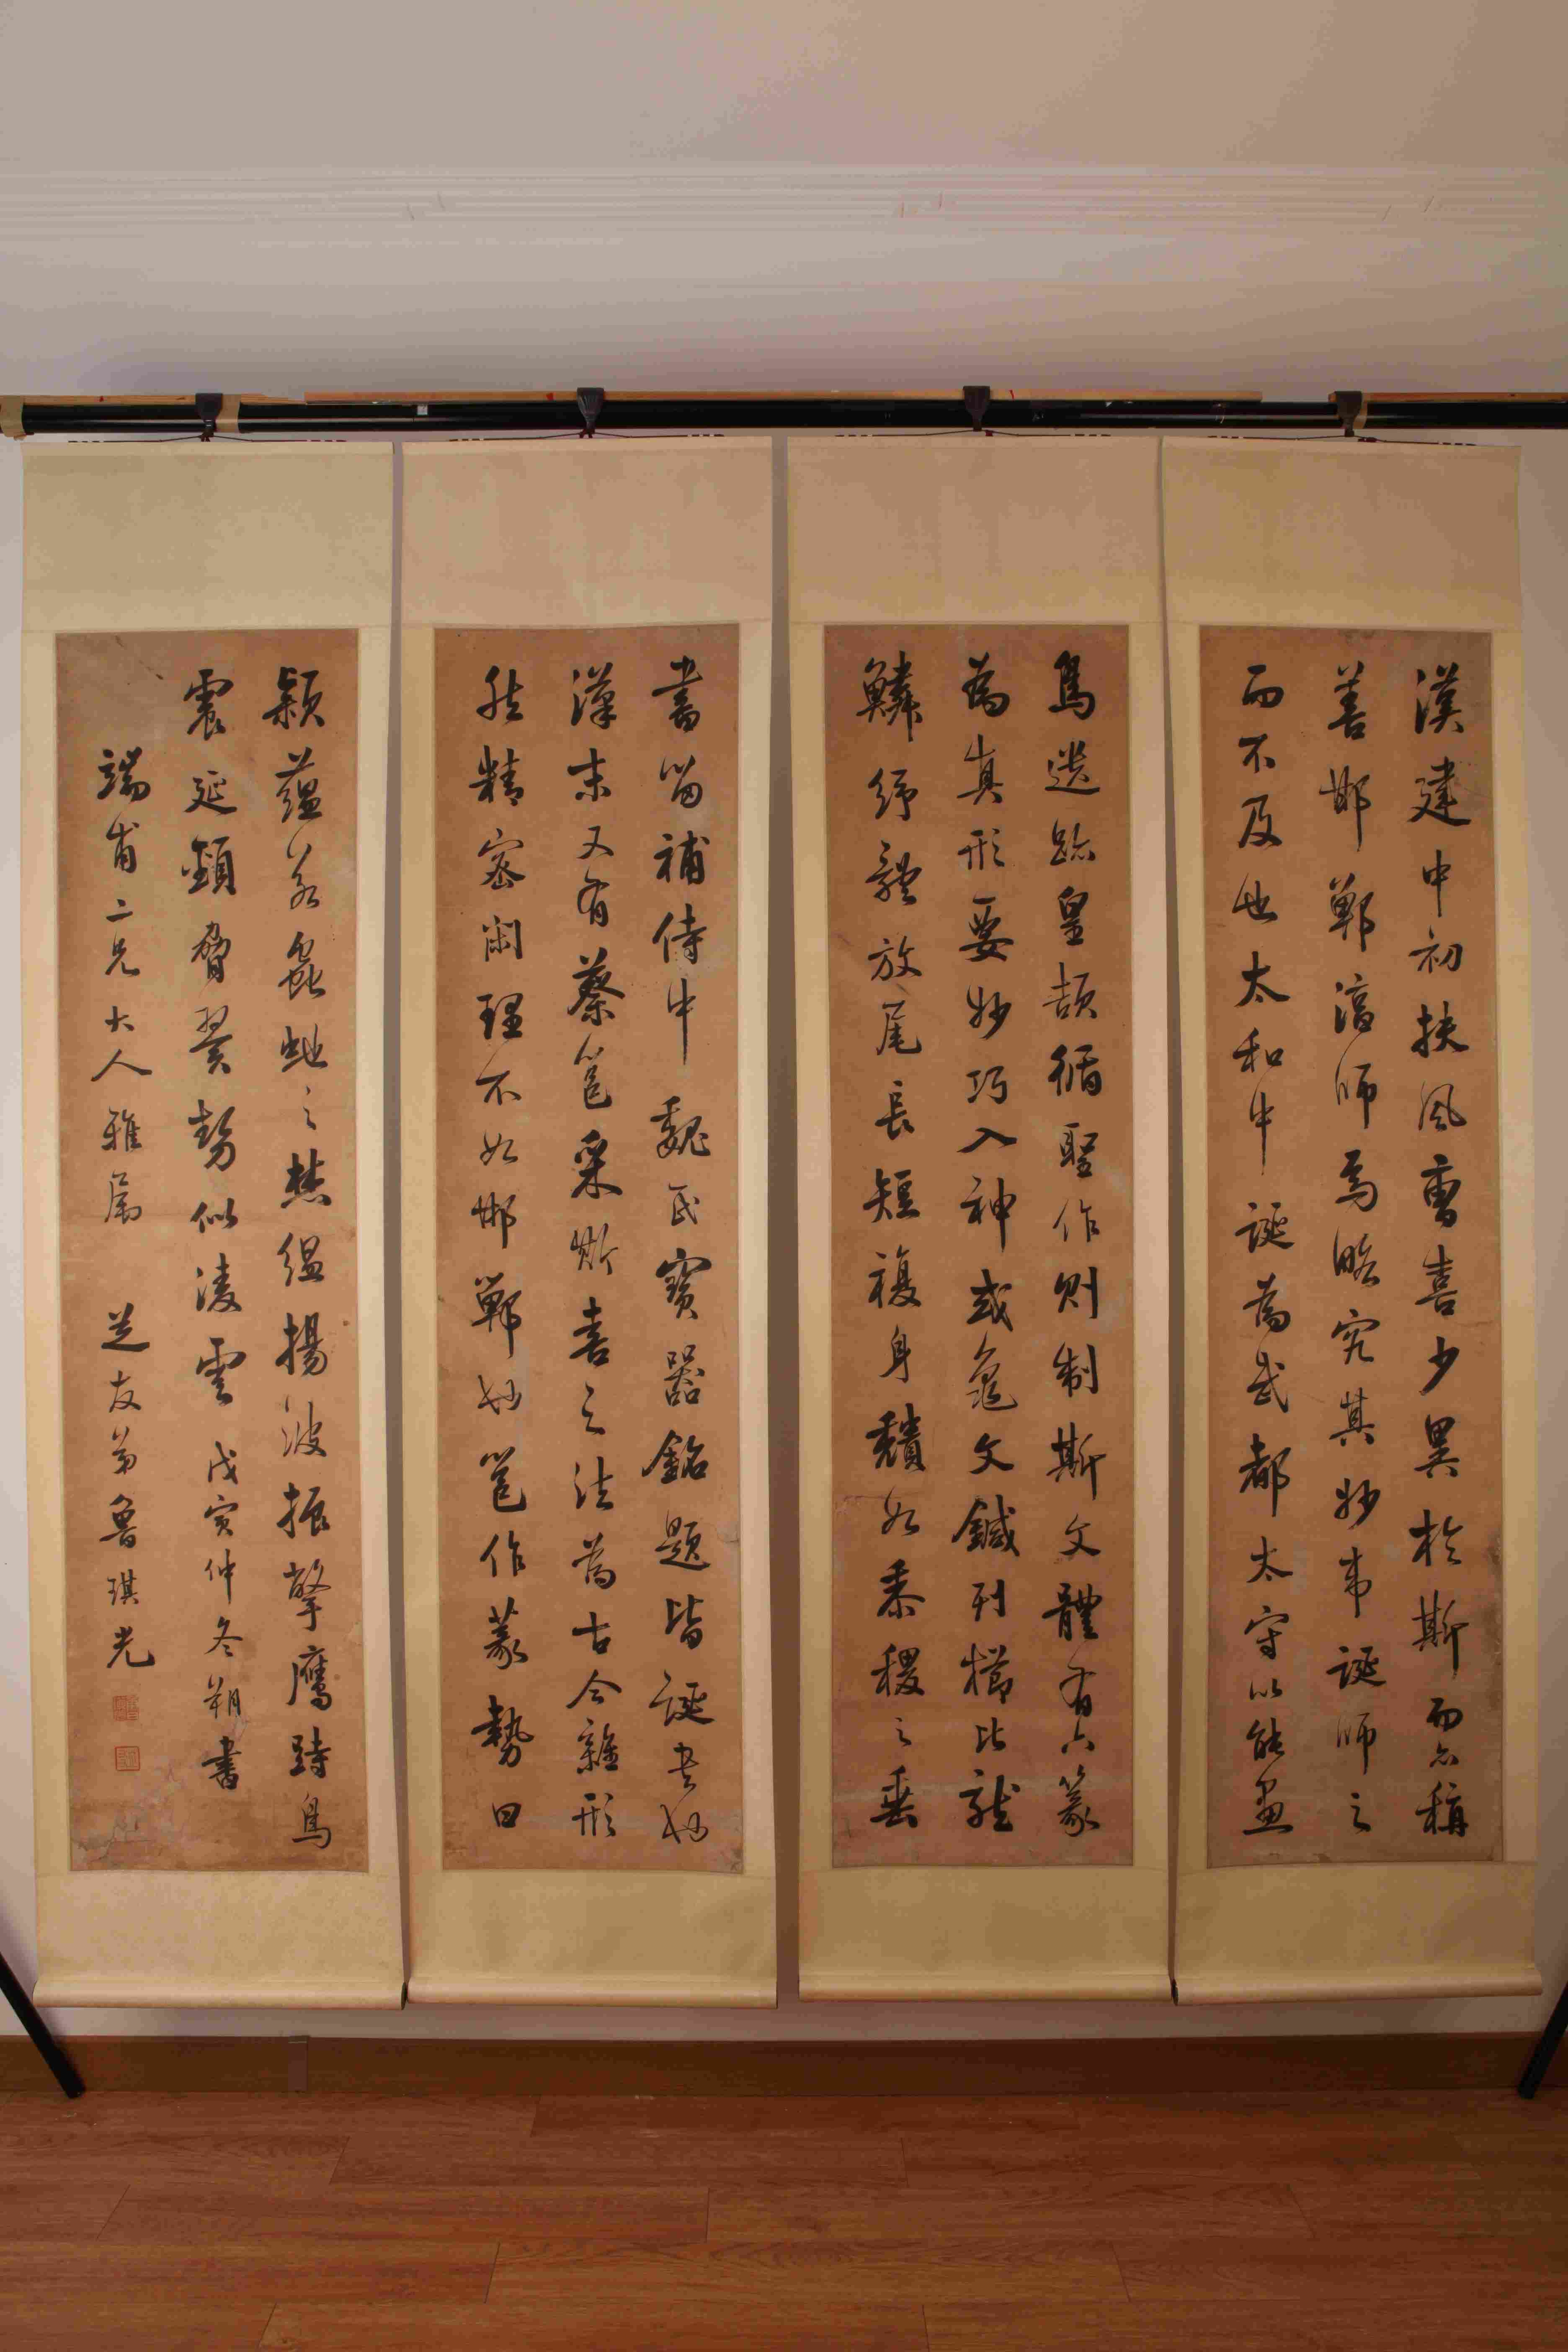 漢建中初扶風曹喜少異於斯而亦稱
善邯鄲淳師焉略究其妙韋誕師之
而不及也太和中誕為武都太守以能畫
鳥遺跡皇頡循聖作則制斯文體有六篆
為真形要妙巧入神或龜文鍼列櫛比龍
鱗紓體放尾長短複身穨如黍稷之垂
書留補侍中魏氏寶器銘題皆誕書也
漢末又有蔡邕采斯喜之法為古今雜形
然精密閑理不如邯鄲也邕作篆勢曰
穎蘊若蟲蛇之棼緼揚波振擎鷹跱鳥
震延頸脅翼勢似凌雲戊寅仲冬朔書
端甫二兄大人雅屬 芝友弟魯琪光